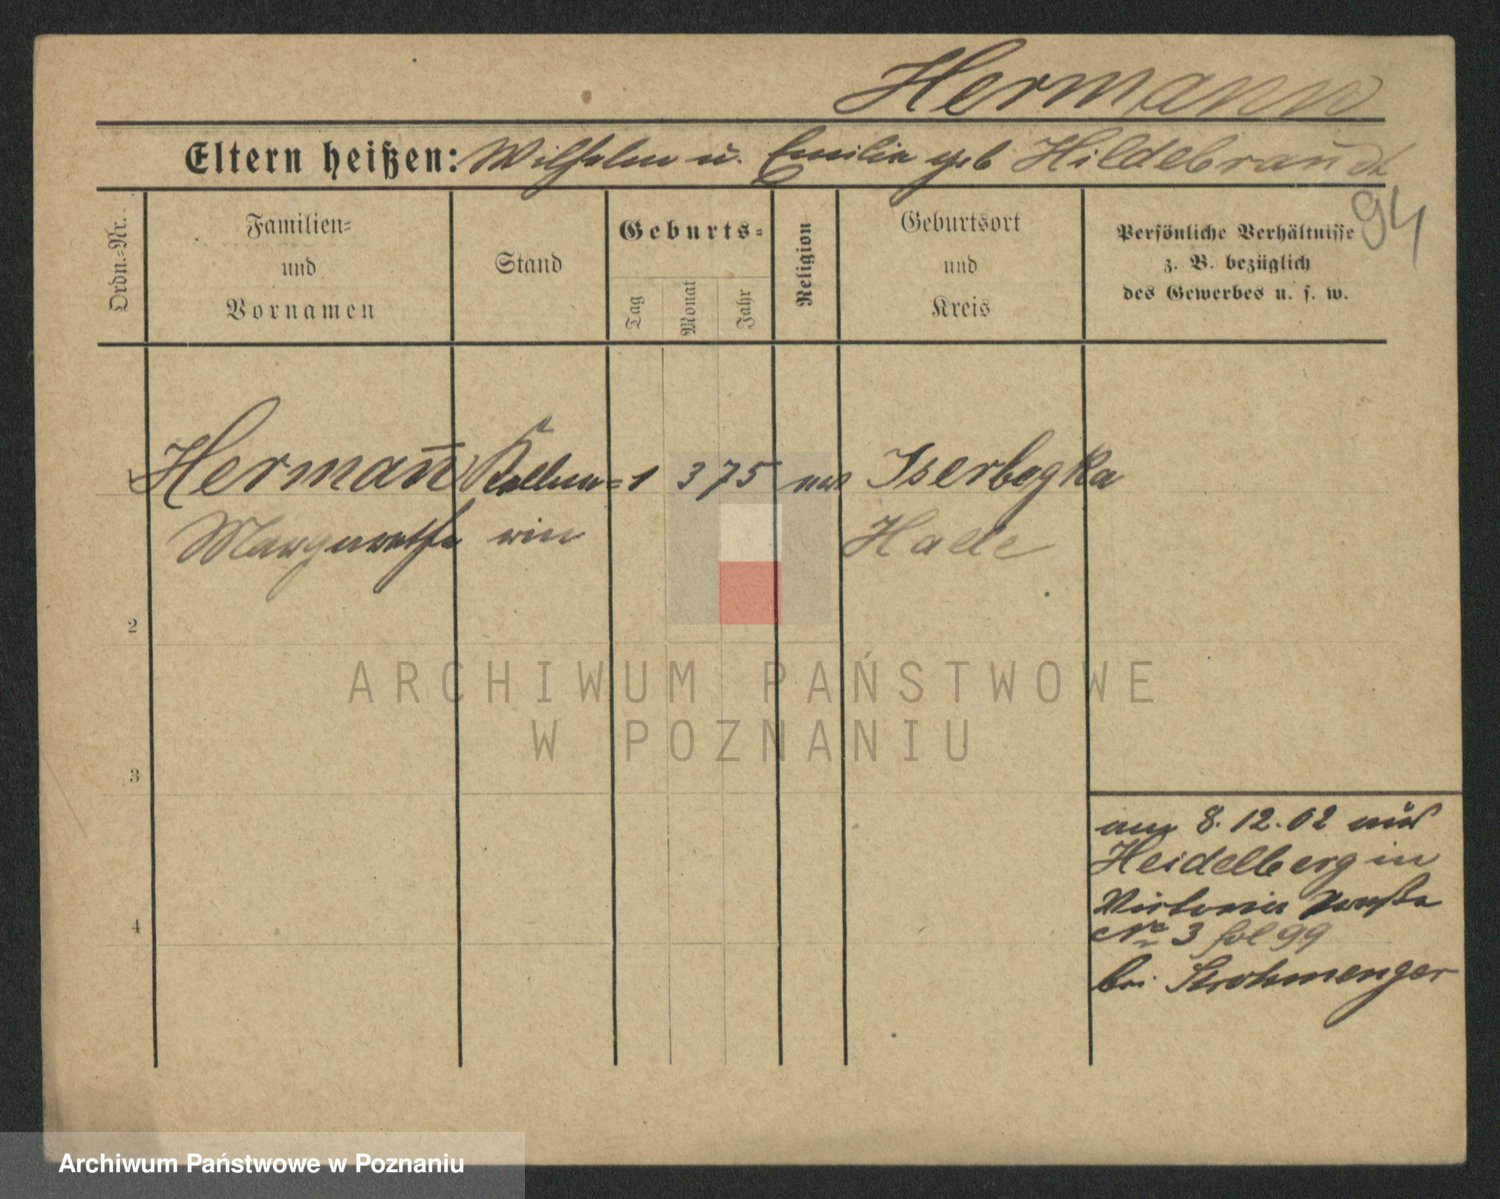 Hermann
Eltern heißen: Wilhelm u. Emilie geb Hildebrandt
94
Ordn.-Nr.
Familien-
und
Vornamen
Stand
Geburts-
Tag
Monat
Jahr
Religion
Geburtsort
und
Kreis
Persönliche Verhältnisse
z. B. bezüglich
des Gewerbes u. s. w.
Hermañ Kellne= 1 3 75
Margarethe rin
2
3
4
am 8. 12. 02 aus
Heidelberg in
Victoria straße
No 3 fol 99
bei Strohmenger
ARCHIWUM PAŃSTWOWE
W POZNANIU
Archiwum Państwowe w Poznaniu